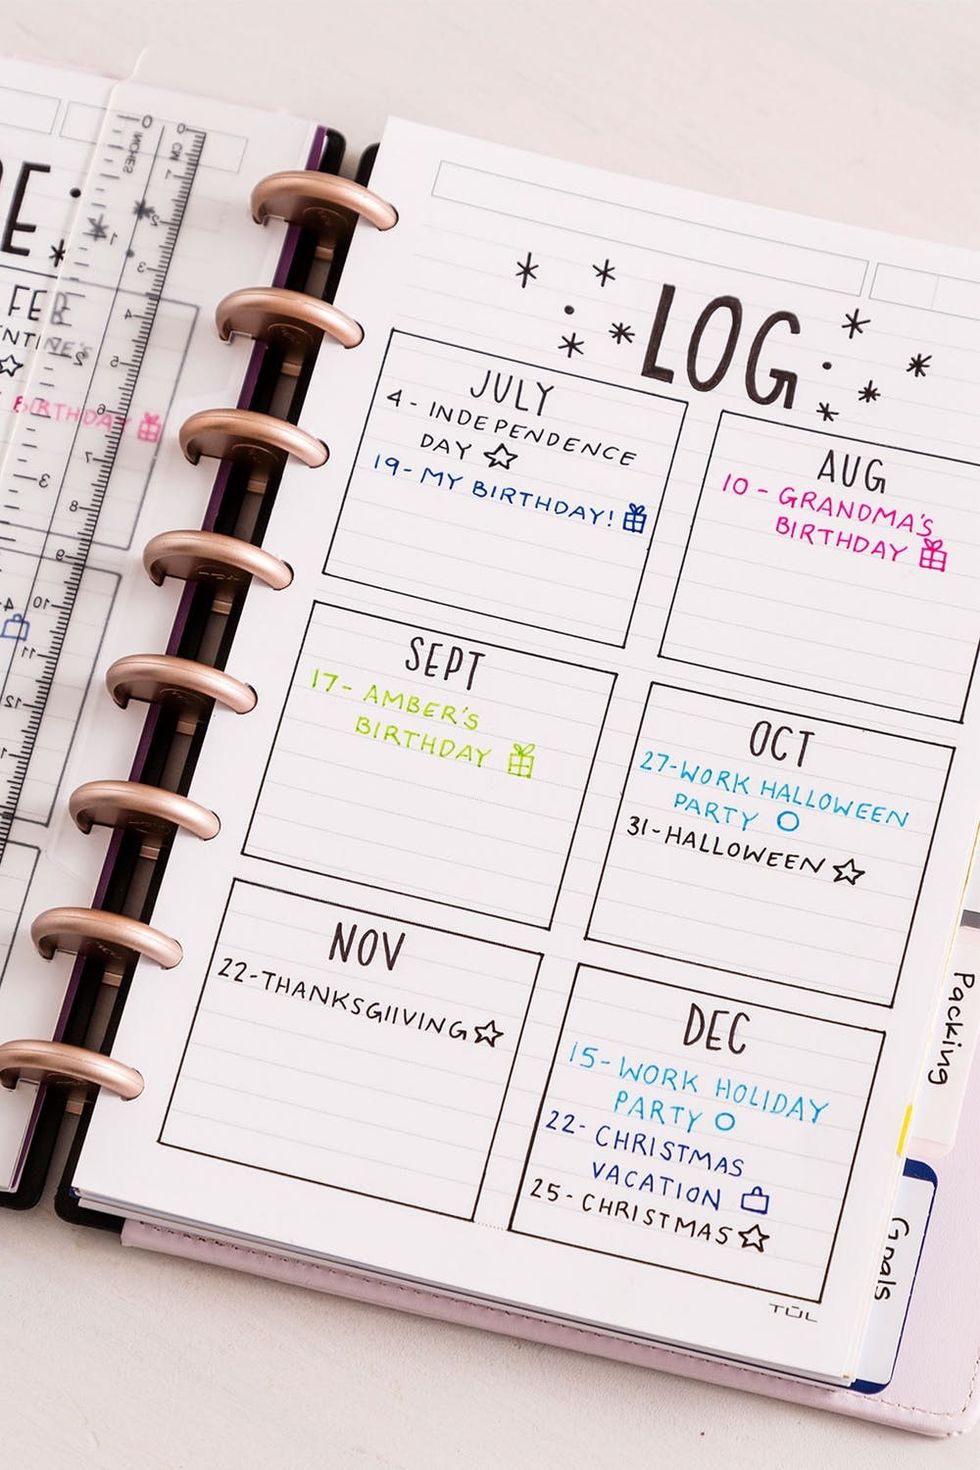 LOG
JULY
4 - INDEPENDENCE
DAY
19 - MY BIRTHDAY!
AUG
10 - GRANDMA'S
BIRTHDAY
SEPT
17 - AMBER'S
BIRTHDAY
OCT
27 - WORK HALLOWEEN
PARTY
31 - HALLOWEEN
NOV
22 - THANKSGIIVING
DEC
15 - WORK HOLIDAY
PARTY
22 - CHRISTMAS
VACATION
25 - CHRISTMAS
TUL
Packing
Goals
FEB
BIRTHDAY
INCHES
CM